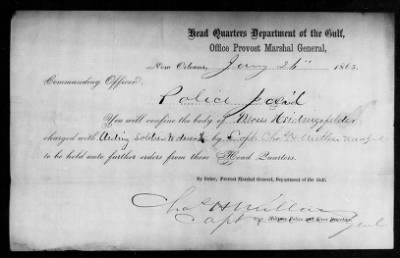 Head Quarters Department of the Gulf,
Office Provost Marshal General,
New Orleans, Jany 26" 1863.
Commanding Officer
Police Jail
You will confine the body of Moses
charged with Aiding Soldier to desert by Capt Chas H Miller
to be held until further orders from these Head Quarters.
By Order, Provost Marshal General, Department of the Gulf.
Chas H Miller
Capt &